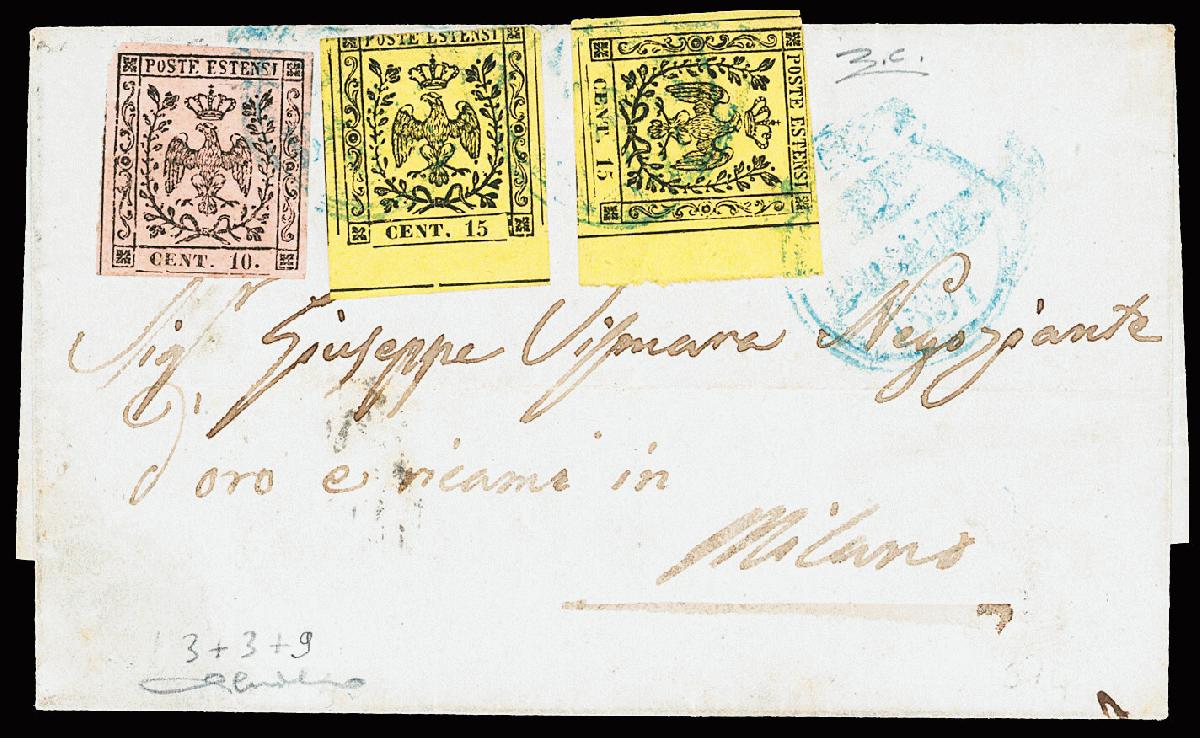 POSTE ESTENSI
CENT. 10.
POSTE ESTENSI
CENT. 15
POSTE ESTENSI
CENT. 15
3.c.
Sigr Giuseppe Vismara Negoziante
d'oro e ricami in
Milano
3+3+9